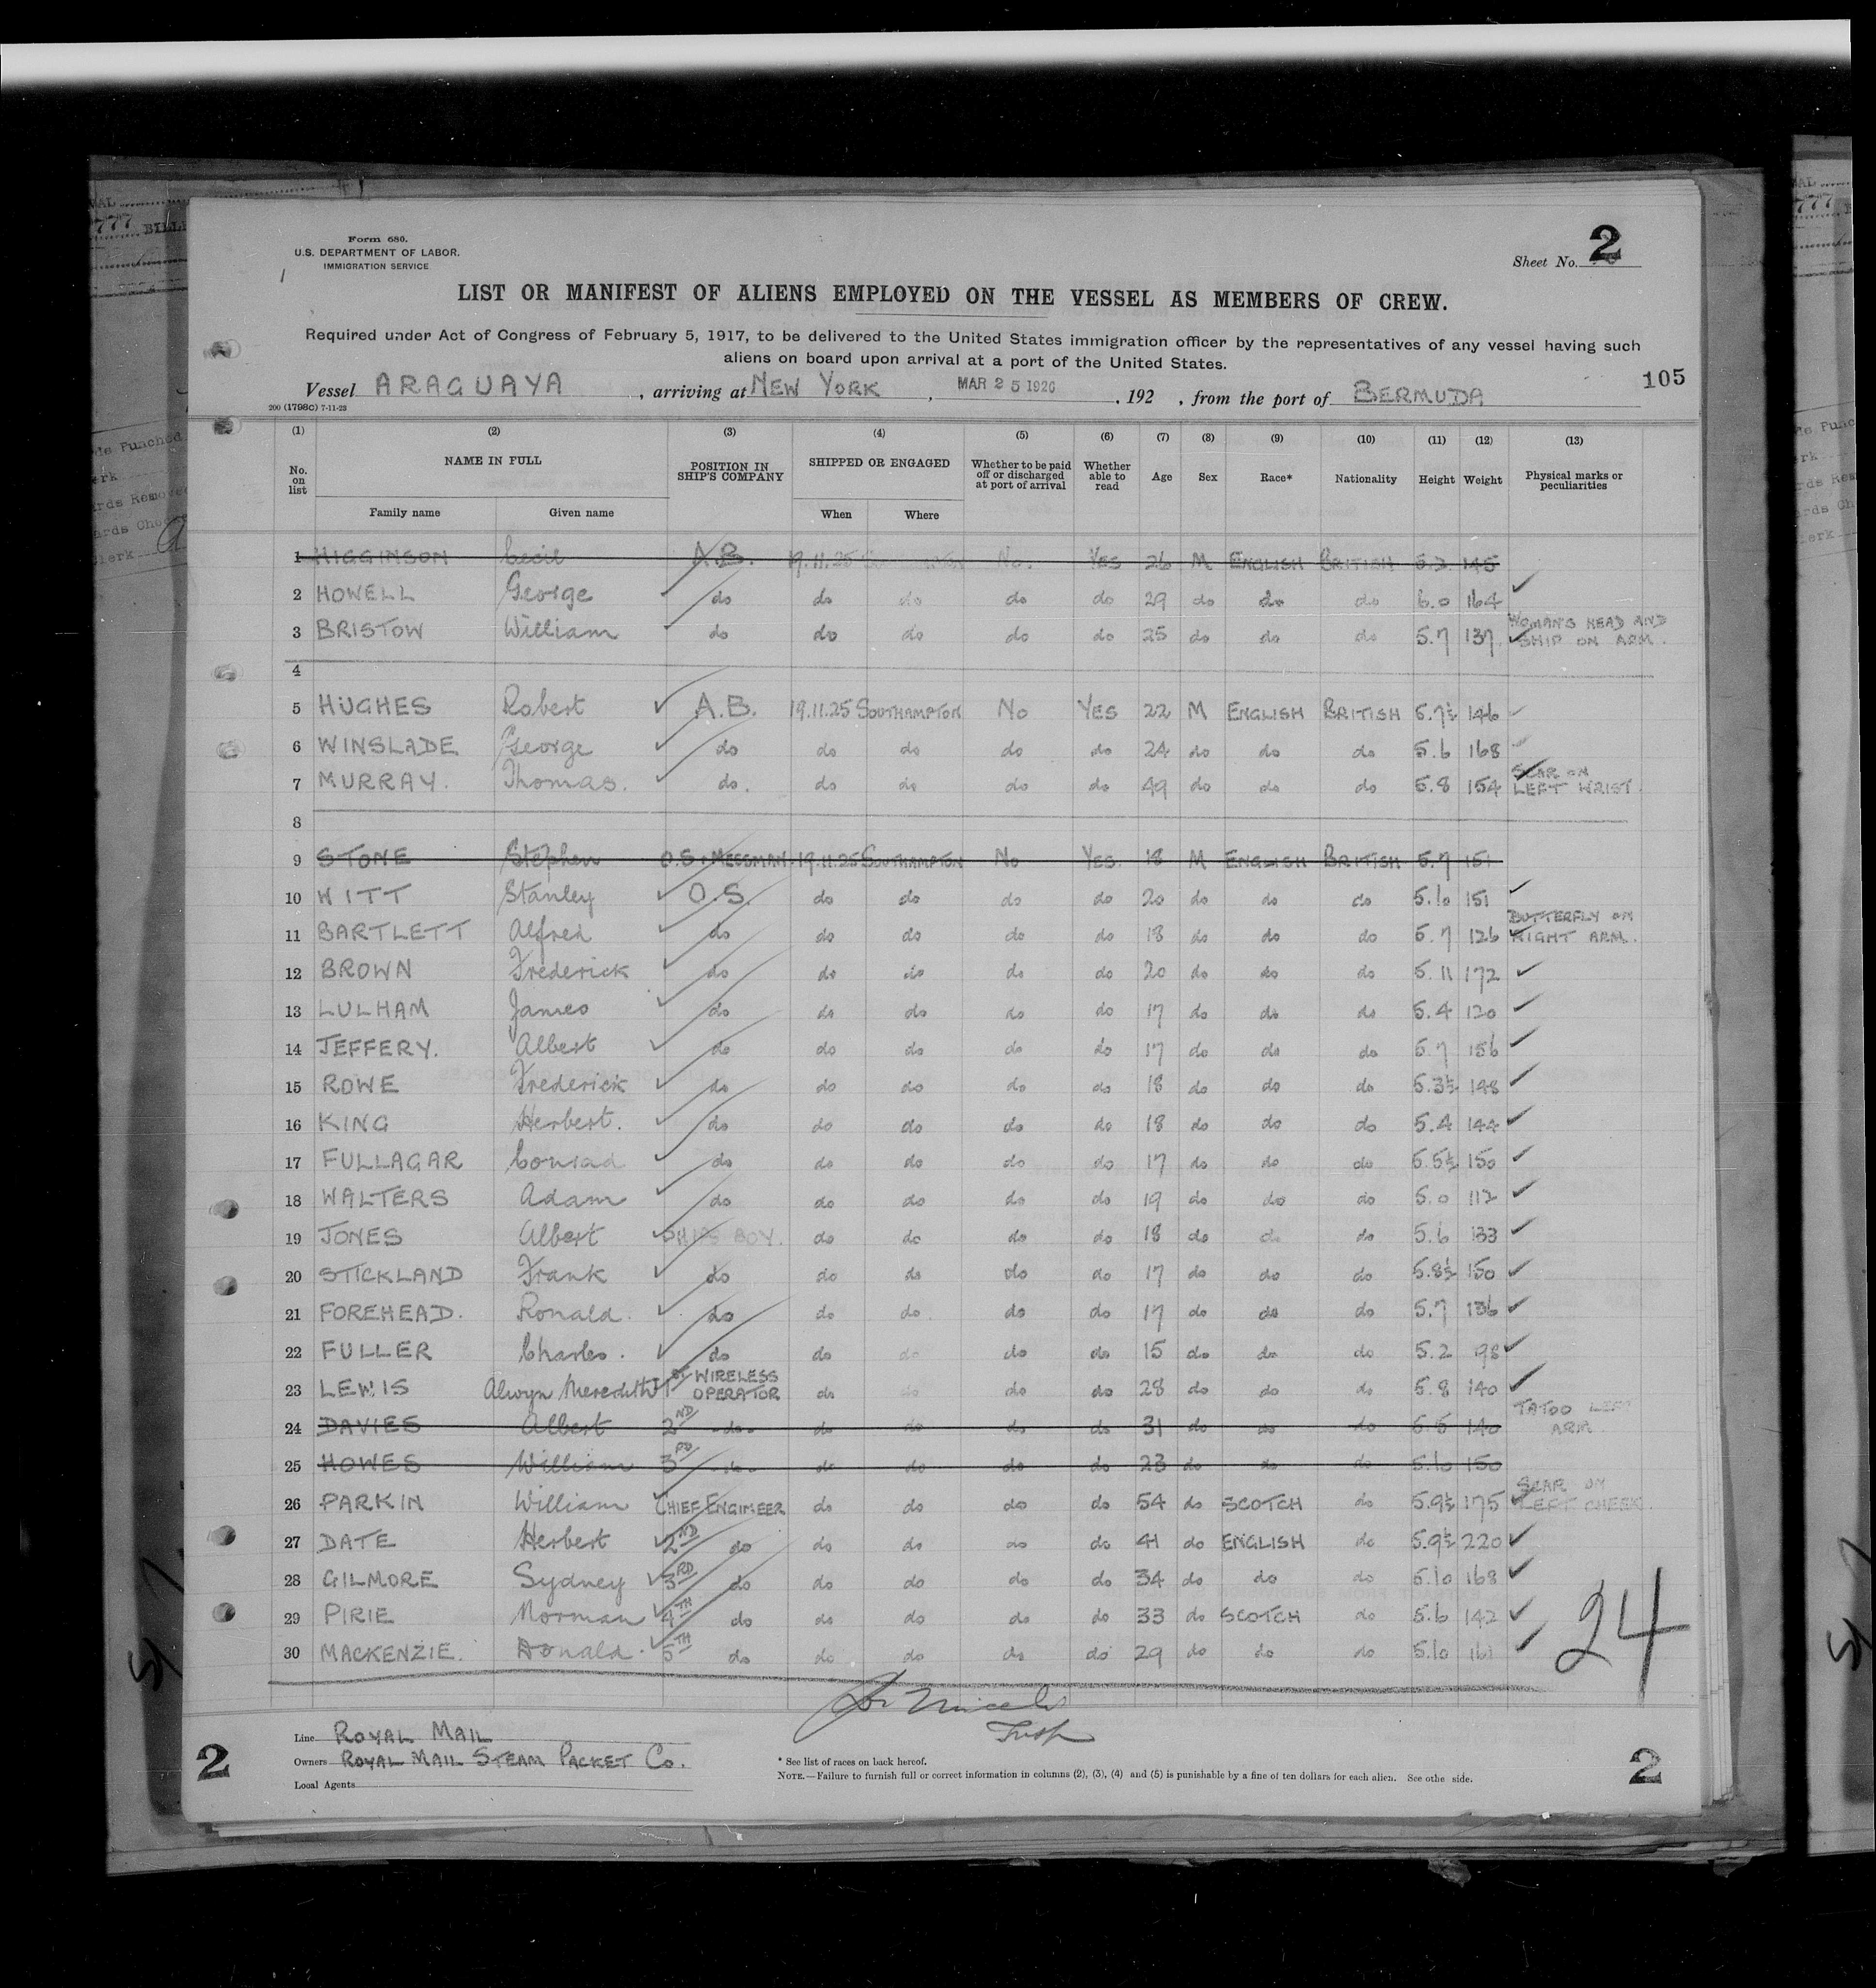 Form 680.
U.S. DEPARTMENT OF LABOR.
IMMIGRATION SERVICE
Sheet No. 2
LIST OR MANIFEST OF ALIENS EMPLOYED ON THE VESSEL AS MEMBERS OF CREW.
Required under Act of Congress of February 5, 1917, to be delivered to the United States immigration officer by the representatives of any vessel having such
aliens on board upon arrival at a port of the United States.
105
Vessel ARAGUAYA, arriving at NEW YORK, MAR 25 1926, 192 , from the port of BERMUDA
200 (1798C) 7-11-23
(1) (2) (3) (4) (5) (6) (7) (8) (9) (10) (11) (12) (13)
No. on list NAME IN FULL POSITION IN SHIP'S COMPANY SHIPPED OR ENGAGED Whether to be paid off or discharged at port of arrival Whether able to read Age Sex Race* Nationality Height Weight Physical marks or peculiarities
Family name Given name When Where
1 HIGGINSON Cecil A.B. 19.11.25 No. YES 26 M ENGLISH BRITISH 5.2 145
2 HOWELL George do do do do do 29 do do do 6.0 164
3 BRISTOW William do do do do do 25 do do do 5.7 137 WOMAN'S HEAD AND SHIP ON ARM.
4
5 HUGHES Robert A.B. 19.11.25 SOUTHAMPTON No YES 22 M ENGLISH BRITISH 5.7½ 146
6 WINSLADE George do do do do do 24 do do do 5.6 168
7 MURRAY. Thomas. do. do do do do 49 do do do 5.8 154 SCAR ON LEFT WRIST.
8
9 STONE Stephen O.S. MESSMAN 19.11.25 SOUTHAMPTON No YES. 18 M ENGLISH BRITISH 5.7 151
10 WITT Stanley O.S. do do do do 20 do do do 5.10 151
11 BARTLETT Alfred do do do do do 18 do do do 5.7 126 BUTTERFLY ON RIGHT ARM.
12 BROWN Frederick do do do do do 20 do do do 5.11 172
13 LULHAM James do do do do do 17 do do do 5.4 120
14 JEFFERY. Albert do do do do do 17 do do do 5.7 156
15 ROWE Frederick do do do do do 18 do do do 5.3½ 148
16 KING Herbert. do do do do do 18 do do do 5.4 144
17 FULLAGAR Conrad do do do do do 17 do do do 5.5½ 150
18 WALTERS Adam do do do do do 19 do do do 5.0 112
19 JONES Albert SHIPS BOY. do do do do 18 do do do 5.6 133
20 STICKLAND Frank do do do do do 17 do do do 5.8½ 150
21 FOREHEAD. Ronald. do do do do do 17 do do do 5.7 136
22 FULLER Charles. do do do do do 15 do do do 5.2 98
23 LEWIS Alwyn Meredith 1ST WIRELESS OPERATOR do do do do 28 do do do 5.8 140
24 DAVIES Albert 2ND do. do do do do 31 do do do 5.5 140 TATOO LEFT ARM
25 HOWES William 3RD do. do do do do 23 do do do 5.10 150
26 PARKIN William CHIEF ENGINEER do do do do 54 do SCOTCH do 5.9½ 175 SCAR ON LEFT CHEEK.
27 DATE Herbert 2ND do do do do do 41 do ENGLISH do 5.9½ 220
28 GILMORE Sydney 3RD do do do do do 34 do do do 5.10 168
29 PIRIE Norman 4TH do do do do do 33 do SCOTCH do 5.6 142
30 MACKENZIE. Donald. 5TH do do do do do 29 do do do 5.10 161
24
Line ROYAL MAIL
Owners ROYAL MAIL STEAM PACKET CO.
Local Agents
* See list of races on back hereof.
NOTE.—Failure to furnish full or correct information in columns (2), (3), (4) and (5) is punishable by a fine of ten dollars for each alien. See othe side.
2
2